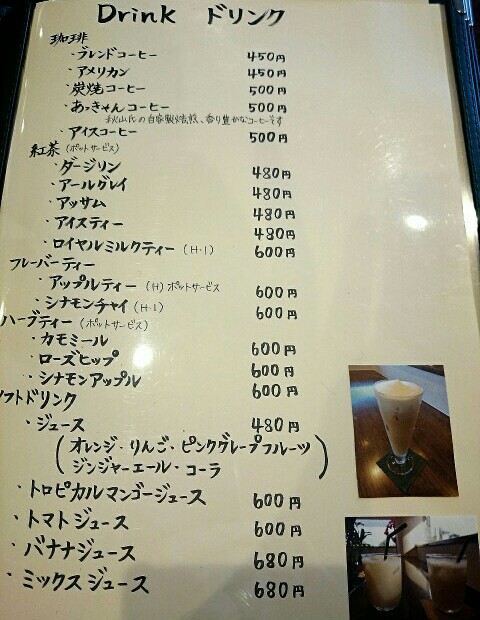 Drink ドリンク
珈琲
・ブレンドコーヒー 450円
・アメリカン 450円
・炭焼コーヒー 500円
・あっきゃんコーヒー 500円
秋山氏の自家製焙煎、香り豊かなコーヒーです
・アイスコーヒー 500円
紅茶（ポットサービス）
・ダージリン 480円
・アールグレイ 480円
・アッサム 480円
・アイスティー 480円
・ロイヤルミルクティー（H・I） 600円
フレーバーティー
・アップルティー（H）ポットサービス 600円
・シナモンチャイ（H・I） 600円
ハーブティー（ポットサービス）
・カモミール 600円
・ローズヒップ 600円
・シナモンアップル 600円
フトドリンク
・ジュース 480円
（オレンジ・りんご・ピンクグレープフルーツ
ジンジャーエール・コーラ）
・トロピカルマンゴージュース 600円
・トマトジュース 600円
・バナナジュース 680円
・ミックスジュース 680円